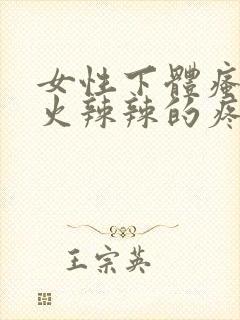 女性下體瘙
火辣辣的疼
王宗英